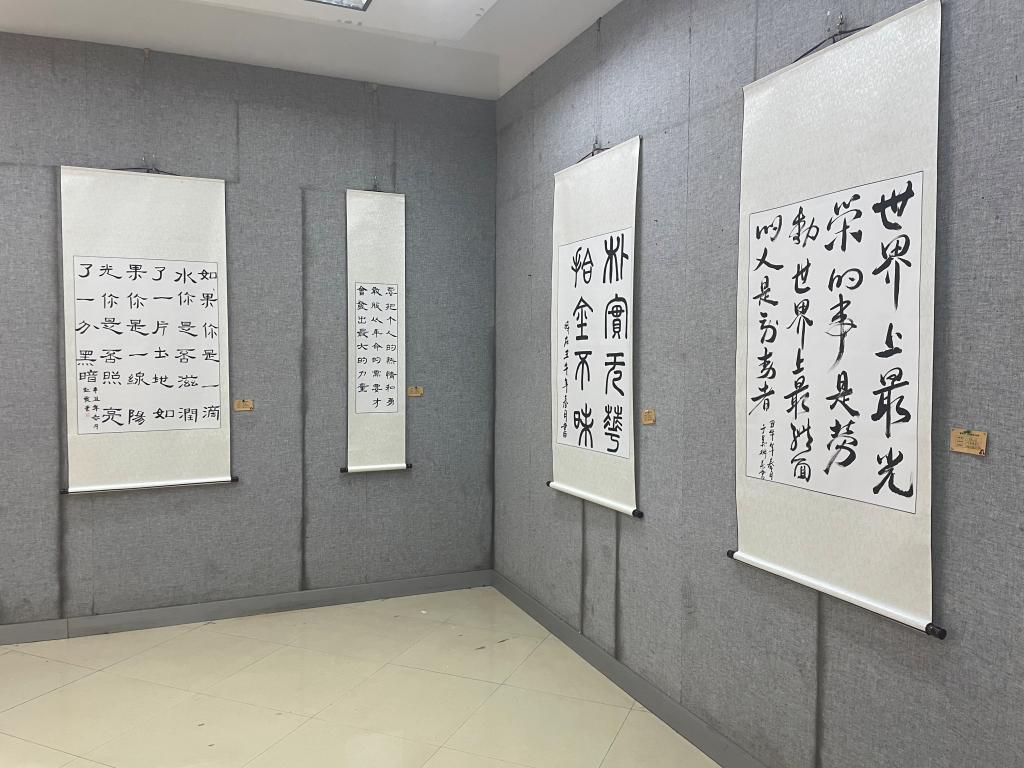 如果你是一滴
水你是否滋潤
了一片土地如
果你是一線陽
光你是否照亮
了一分黑暗
要把个人的熱情和勇
敢服从革命的需要才
會發出最大的力量
朴實无華
拾金不昧
世界上最光
榮的事是劳
動世界上最体面
的人是劳動者